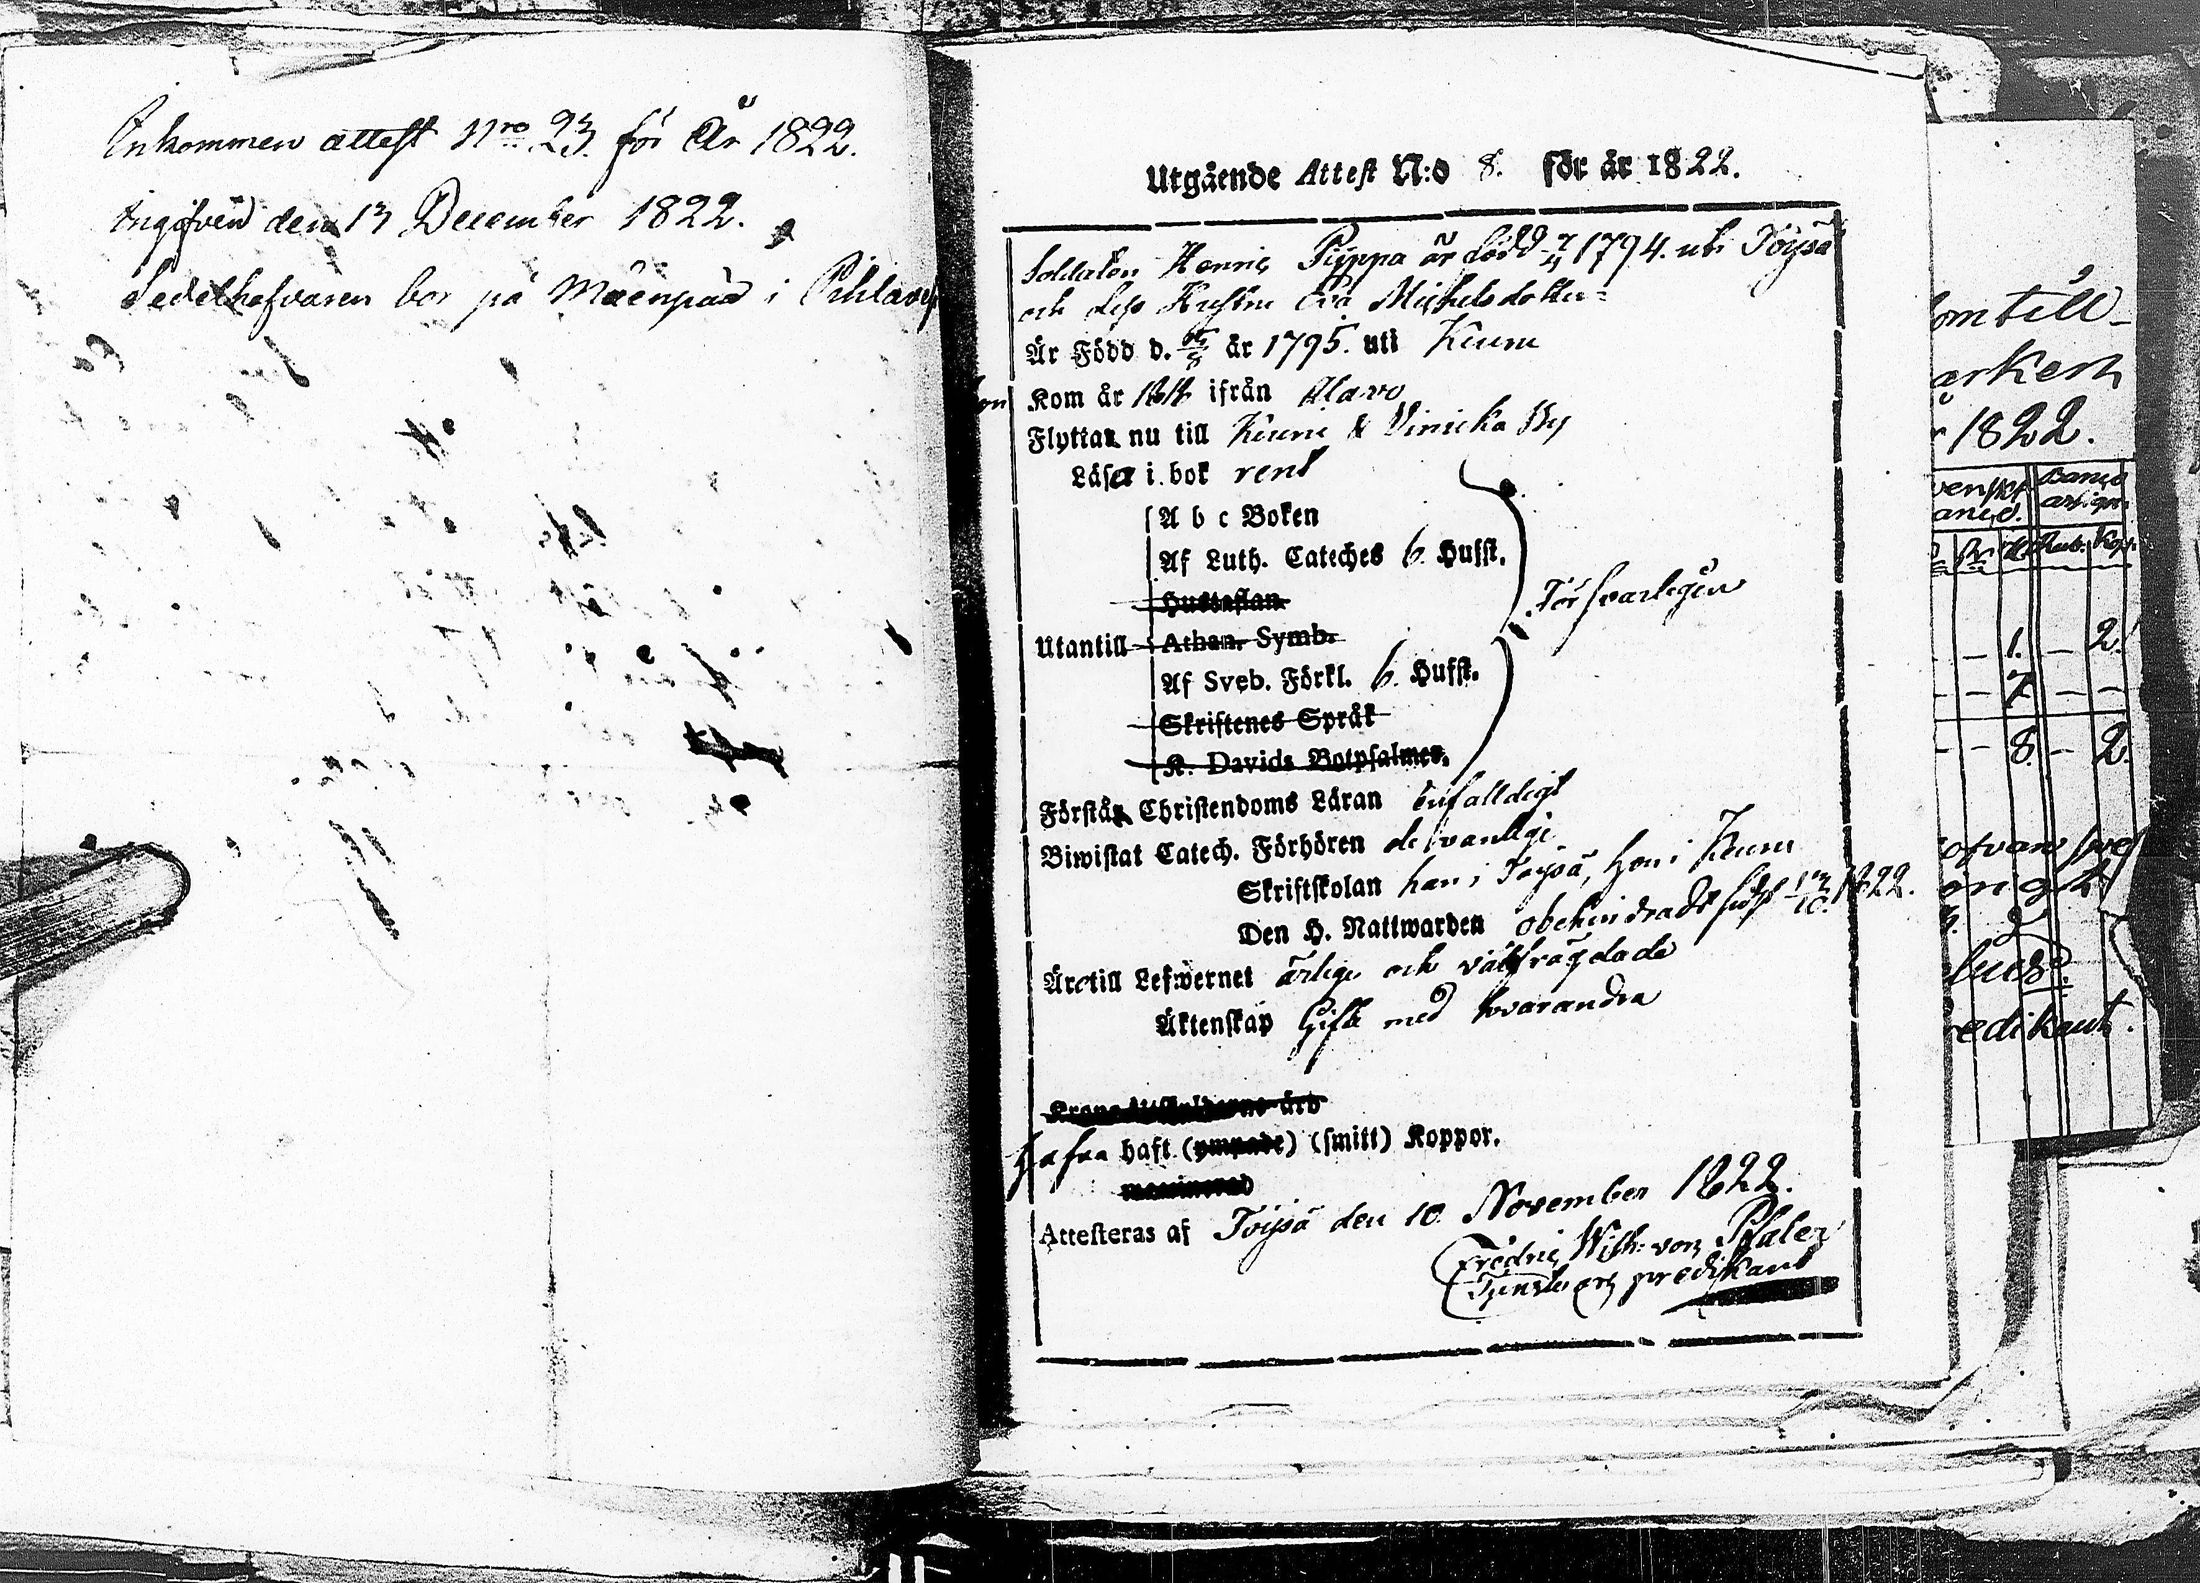 Inkommen attest Nro 23. för År 1822.
Ingifven den 13 December 1822.
Sedelhafvaren bor på Mäenpää i
Utgående Attest N:o 8. för år 1822.
Soldaten Henric Pyppa är född 7/11 1794. uti Töysä
och dess Hustru Eva Michelsdotter
Är Född d. år 1795. uti Keuru
Kom år ifrån Alavo
Flyttar nu till Keuru & By
Läsa i bok rent
A b c Boken
Af Luth. Cateches 6. Hufst.
Hustaflan
Försvarligen
Utantill Athan. Symb.
Af Sveb. Förkl. 6. Hufst.
Skriftenes Språk
K. Davids Botpsalmer.
Förstår Christendoms Läran enfalldigt
Biwistat Catech. Förhören de vanlige
Skriftskolan han i Töysä, hon i Keuru
Den H. Nattwarden obehindradt sidst 13/10. 1822.
Äro till Lefwernet ärlige och välfrägdade
Äktenskap Gifte med hvarandra
hafva haft (ympade) (smitt) Koppor.
Attesteras af Töysä den 10 November 1822.
Fredric Wilh: von Pfaler
predikant
om till-
1822.
1. – 2.
7 – –
8. – 2.
edikant.